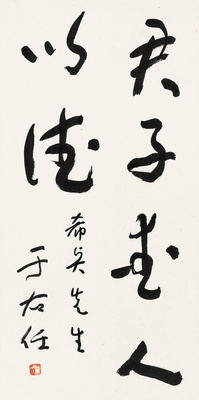 君子愛人
以德
希吳先生
于右任